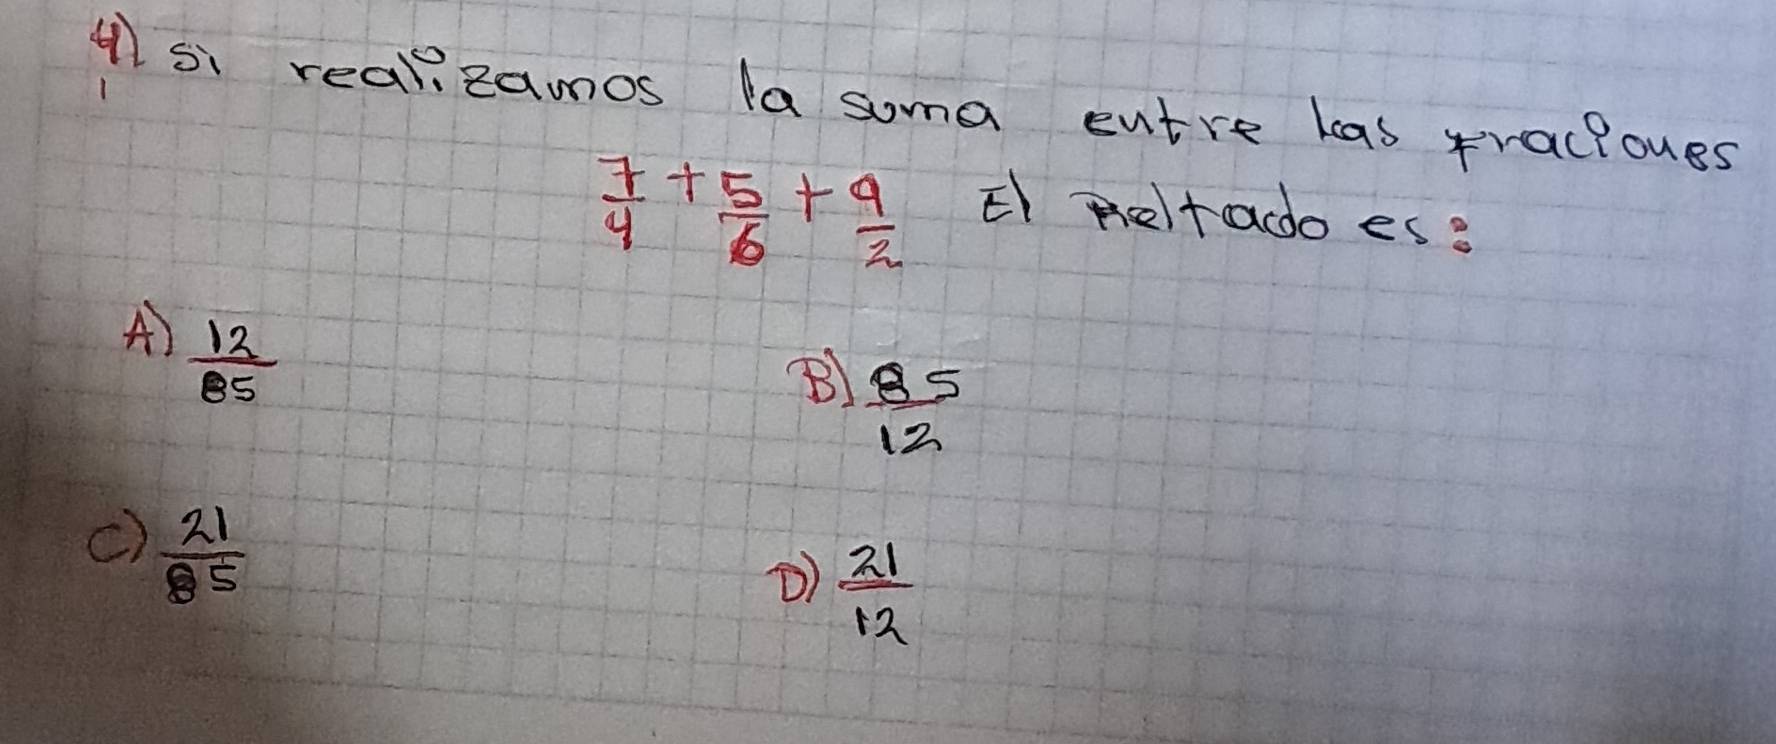 4) Si realizamos la suma entre las fraciones
7/4 + 5/6 + 9/2 El Reltado es:
A) 12/85
B) 85/12
C) 21/85
D) 21/12